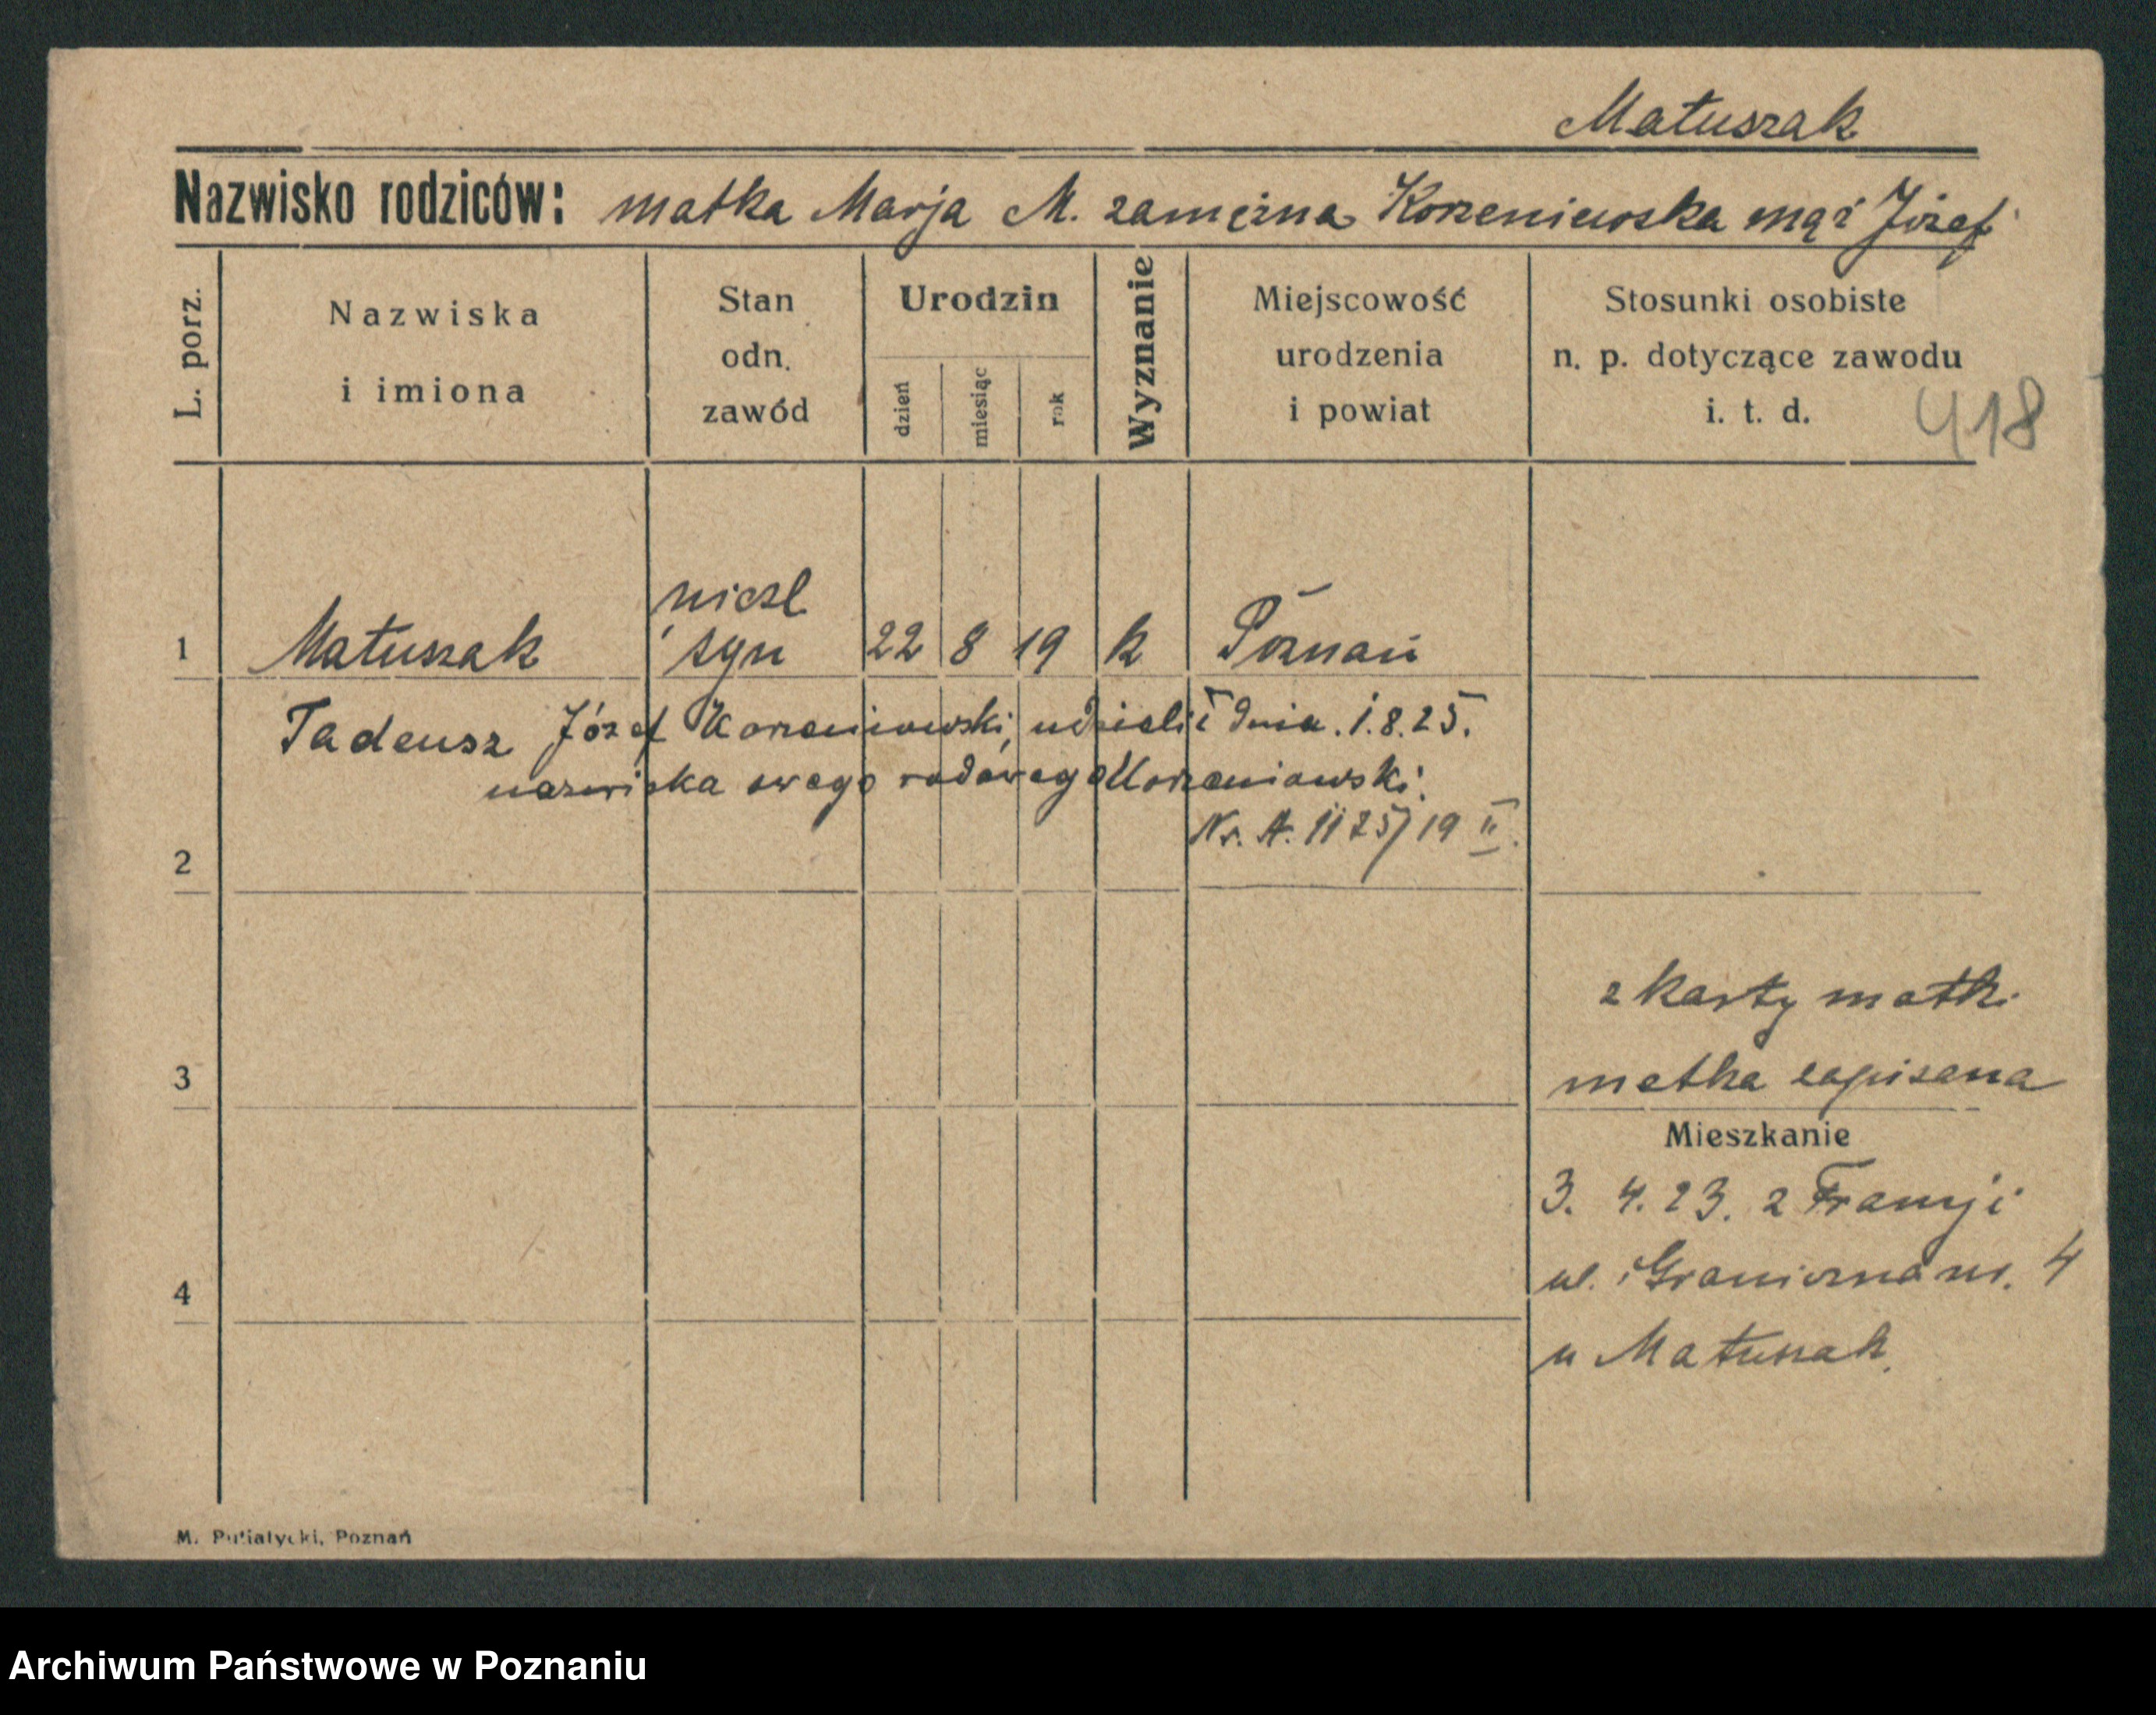 Matuszak
Nazwisko rodziców: matka Marja M. zamężna Korzeniewska mąż Józef
L. porz.
Nazwiska
i imiona
Stan
odn.
zawód
Urodzin
dzień
miesiąc
rok
Wyznanie
Miejscowość
urodzenia
i powiat
Stosunki osobiste
n. p. dotyczące zawodu
i. t. d.
418
nieśl
1 Matuszak syn 22 8 19 k Poznań
Tadeusz Józef Korzeniowski, udzielił dnia. 1.8.25.
nazwiska swego rodowego Korzeniowski.
Nr. A. 1175/19 II.
2
z karty matki
matka zapisana
3
Mieszkanie
3. 4. 23. z Francji
ul. Graniczna nr. 4
4
u Matuszak.
M. Putiatycki, Poznań
Archiwum Państwowe w Poznaniu